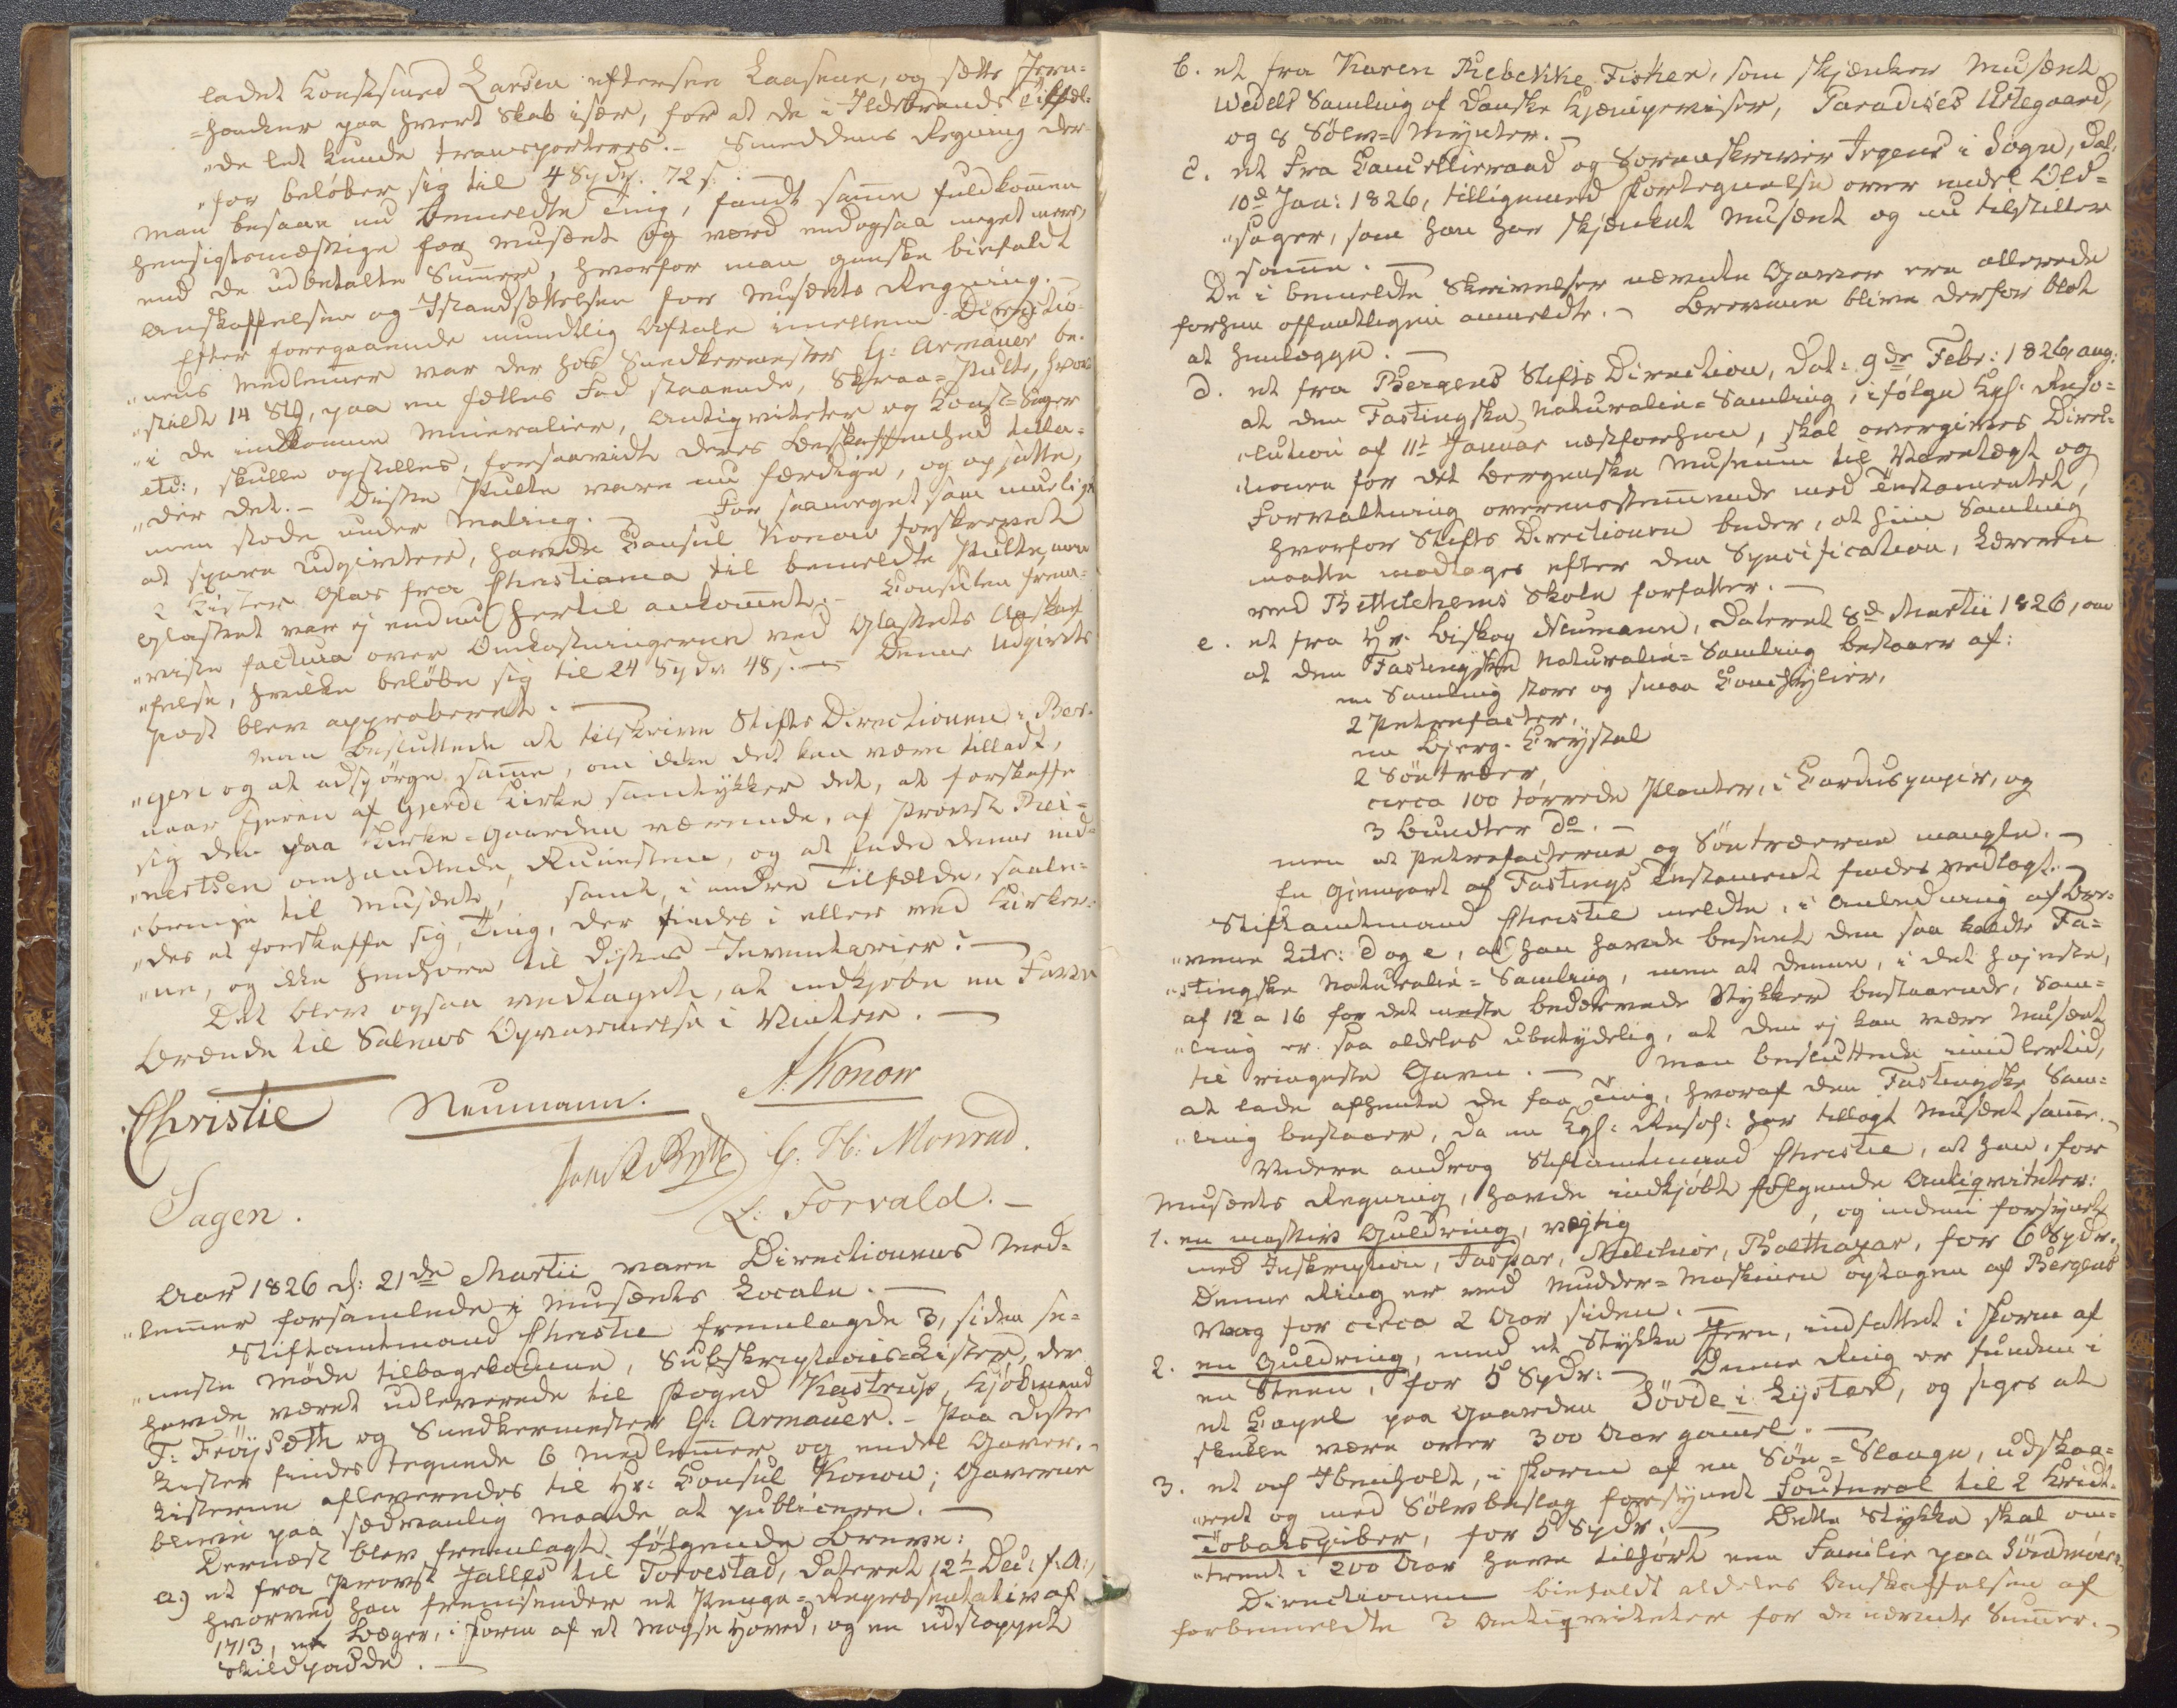 ladet Konstsmed Larsen eftersee Laasene, og sætte Jern-
=hanker paa hvert Skab især, for at de i Ildebrands Tilfæl-
"de let kunde transporteres. – Smeddens Regning der-
"for beløber sig til 4 Spdr. 72 s.
Man besaae nu bemeldte Ting, fandt samme fuldkommen
hensigtsmæssige for Musæet og værd endogsaa meget meer,
end de udbetalte Summer, hvorfor man ganske bifaldt
Anskaffelsen og Istandsættelsen for Musæets Regning. –
Efter foregaaende mundtlig Aftale imellem Directio-
"nens Medlemmer var der hos Snedkermester G: Armauer be-
"stilt 14 Stk, paa en fælles Fod staaende, Skraa=Pulte, hvor-
"i de indkomne Mineralier, Antiqviteter og Konst=Sager
etc:, skulle opstilles, forsaavidt deres Beskaffenhed tilla-
"der det. – Disse Pulte vare nu færdige, og opsatte,
men stode under Maling. – For saameget som mueligt
at spare Udgivter, havde Consul Konow forskrevet
2 Kister Glas fra Christiania til bemeldte Pulte, men
Glasset var ej endnu hertil ankommet. – Consulen frem-
"viste Factura over Omkostningerne ved Glassets Anskaf-
"felse, hvilke beløbe sig til 24 Spdr 48 s. – Denne Udgivts
Post blev approberet. –
Man besluttede at tilskrive Stifts Directionen i Ber-
"gen og at adspørge samme, om ikke det kan være tilladt,
naar Ejeren af Gjerde Kirke samtykker det, at forskaffe
sig den paa Kirke=Gaarden værende, af Provst Rei-
"nertsen omhandlede, Runesteen, og at lade denne ind-
"bringe til Musæet, samt, i andre Tilfælde, saale-
"des at forskaffe sig, Ting, der findes i eller ved Kirker-
"ne, og ikke henhøre til disses Inventarier. –
Det blev ogsaa vedtaget, at indkjøbe en Favn
Brænde til Salens Opvarmelse i Vinter. –
Christie Neumann. A. Konow
C. H: Monrad.
Sagen. L: Torvald. –
Aar 1826 d: 21de Martii vare Directionens Med-
"lemmer forsamlede i Musæets Locale. –
Stiftamtmand Christie fremlagde 3, siden se-
"neste Møde tilbagekomne, Subskriptions=Lister, der
havde været udleverede til Foged Kastrup, Kjøbmand
F: Frøysæth og Snedkermester G: Armauer. – Paa disse
Lister findes tegnede 6 Medlemmer og endel Gaver. –
Listerne afleveredes til Hr: Consul Konow; Gaverne
blive paa sædvanlig Maade at publicere. –
Dernæst blev fremlagt følgende Breve:
a.) et fra Provst Jalles til Torvestad, dateret 12t Dec: f: A:,
hvorved han fremsender et Penge=Repræsentativ af
1713, et Bæger, i Form af et Mogse Hoved, og en udstoppet
Skildpadde. –
b. et fra Karen Rebekke Fisker, som skjænker Musæet
Wedels Samling af danske Kjæmpeviser, Paradises Urtegaard,
og 8 Sølv=Mynter. –
c. et fra Cancellieraad og Sorenskriver Irgens i Sogn, dat:
10d Jan: 1826, tilligemed Fortegnelse over endel Old-
"sager, som han har skjænket Musæet og nu tilstiller
samme. –
De i bemeldte Skrivelser nævnte Gaver ere allerede
forhen offentligen anmeldte. – Brevene blive derfor blot
at henlægge. –
d. et fra Bergens Stifts Direction, dat: 9de Febr: 1826, ang:
at den Fastingske Naturalie=Samling, ifølge Kgl: Reso-
"lution af 11t Januar næstforhen, skal overgives Direc-
"tionen for det bergenske Museum til Varetægt og
Forvaltning overensstemmende med Testamentet,
hvorfor Stifts Directionen beder, at hiin Samling
maatte modtages efter den Specification, Læreren
ved Bethlehems Skole forfatter. –
e. et fra Hr. Biskop Neumann, dateret 8d Martii 1826, om
at den Fastingske Naturalie=Samling bestaaer af:
en Samling store og smaa Conchylier,
2 Petrefacter,
en Bjerg-Crystal
2 Søetræer,
circa 100 tørrede Planter, i Carduspapir, og
3 Bundter do. –
men at Petrefacterne og Søetræerne mangle. –
En Gjenpart af Fastings Testament findes vedlagt. –
Stiftamtmand Christie meldte, i Anledning af Bre-
"vene Litr: d og e, at han havde beseet den saa kaldte Fa-
"stingske Naturalie=Samling, men at denne, i det højeste,
af 12 a 16 for det meste bedærvede Stykker bestaaende, Sam-
"ling er saa aldeles ubetydelig, at den ej kan være Musæet
til ringeste Gavn. – Man besluttede imidlertid,
at lade afhente de faa Ting, hvoraf den Fastingske Sam-
"ling bestaaer, da en Kgl: Resol: har tillagt Musæet samme. –
Videre androg Stiftamtmand Christie, at han, for
Musæets Regning, havde indkjøbt følgende Antiqviteter:
1. en massiv Guldring, vægtig , og indeni forsynet
med Inskription, Jaspar, Melchior, Balthazar, for 6 Spdr.
Denne Ring er med Mudder=Maskinen optagen af Bergens
Vaag for circa 2 Aar siden. –
2. en Guldring, med et Stykke Jern, indfattet i Form af
en Steen, for 5 Spdr: – Denne Ring er funden i
et Capel paa Gaarden Søvde i Lyster, og siges at
skulle være over 300 Aar gamel. –
3. et af Ibenholt, i Form af en Søe=Slange, udskaa-
"ret og med Sølvbeslag forsynet Fouteral til 2 Kridt-
Tobakspiber, for 5 Spdr. – Dette Stykke skal om-
"trent i 200 Aar have tilhørt een Familie paa Søndmøer. –
Directionen bifaldt aldeles Anskaffelsen af
forbemeldte 3 Antiqviteter for de nævnte Summer. –